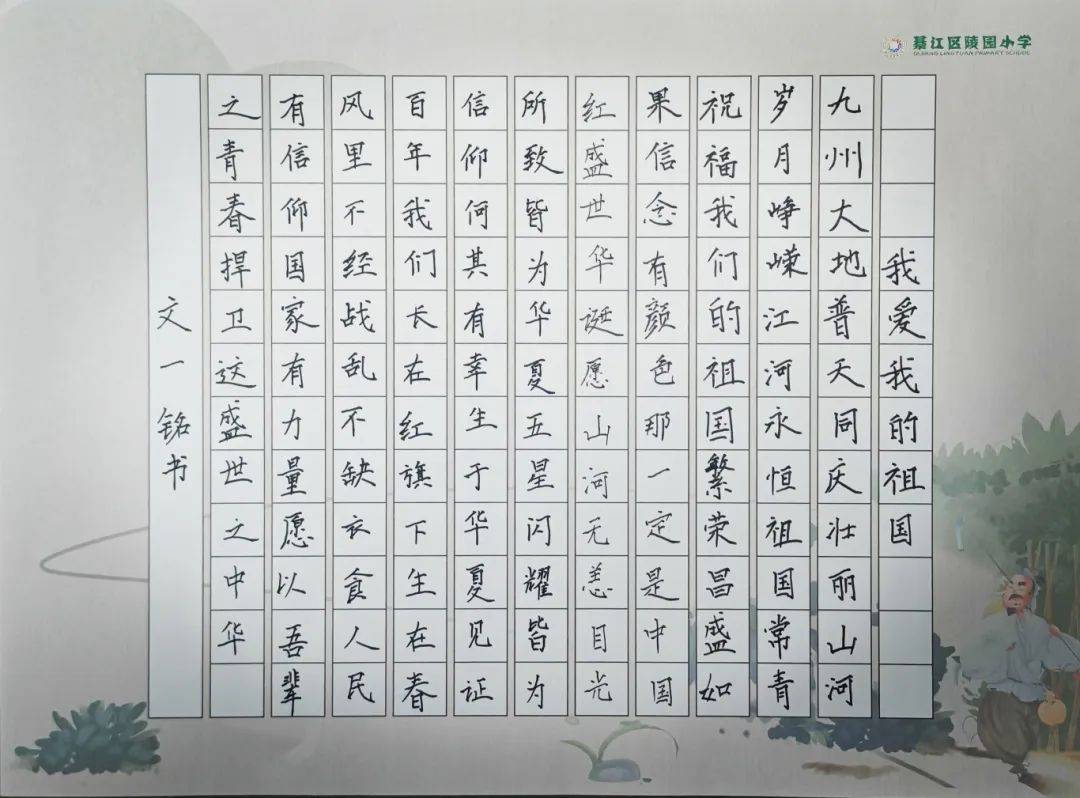 綦江区陵园小学
QIJIANG LINGYUAN PRIMARY SCHOOL
我爱我的祖国
九州大地普天同庆壮丽山河
岁月峥嵘江河永恒祖国常青
祝福我们的祖国繁荣昌盛如
果信念有颜色那一定是中国
红盛世华诞愿山河无恙目光
所致皆为华夏五星闪耀皆为
信仰何其有幸生于华夏见证
百年我们长在红旗下生在春
风里不经战乱不缺衣食人民
有信仰国家有力量愿以吾辈
之青春捍卫这盛世之中华
文一铭书